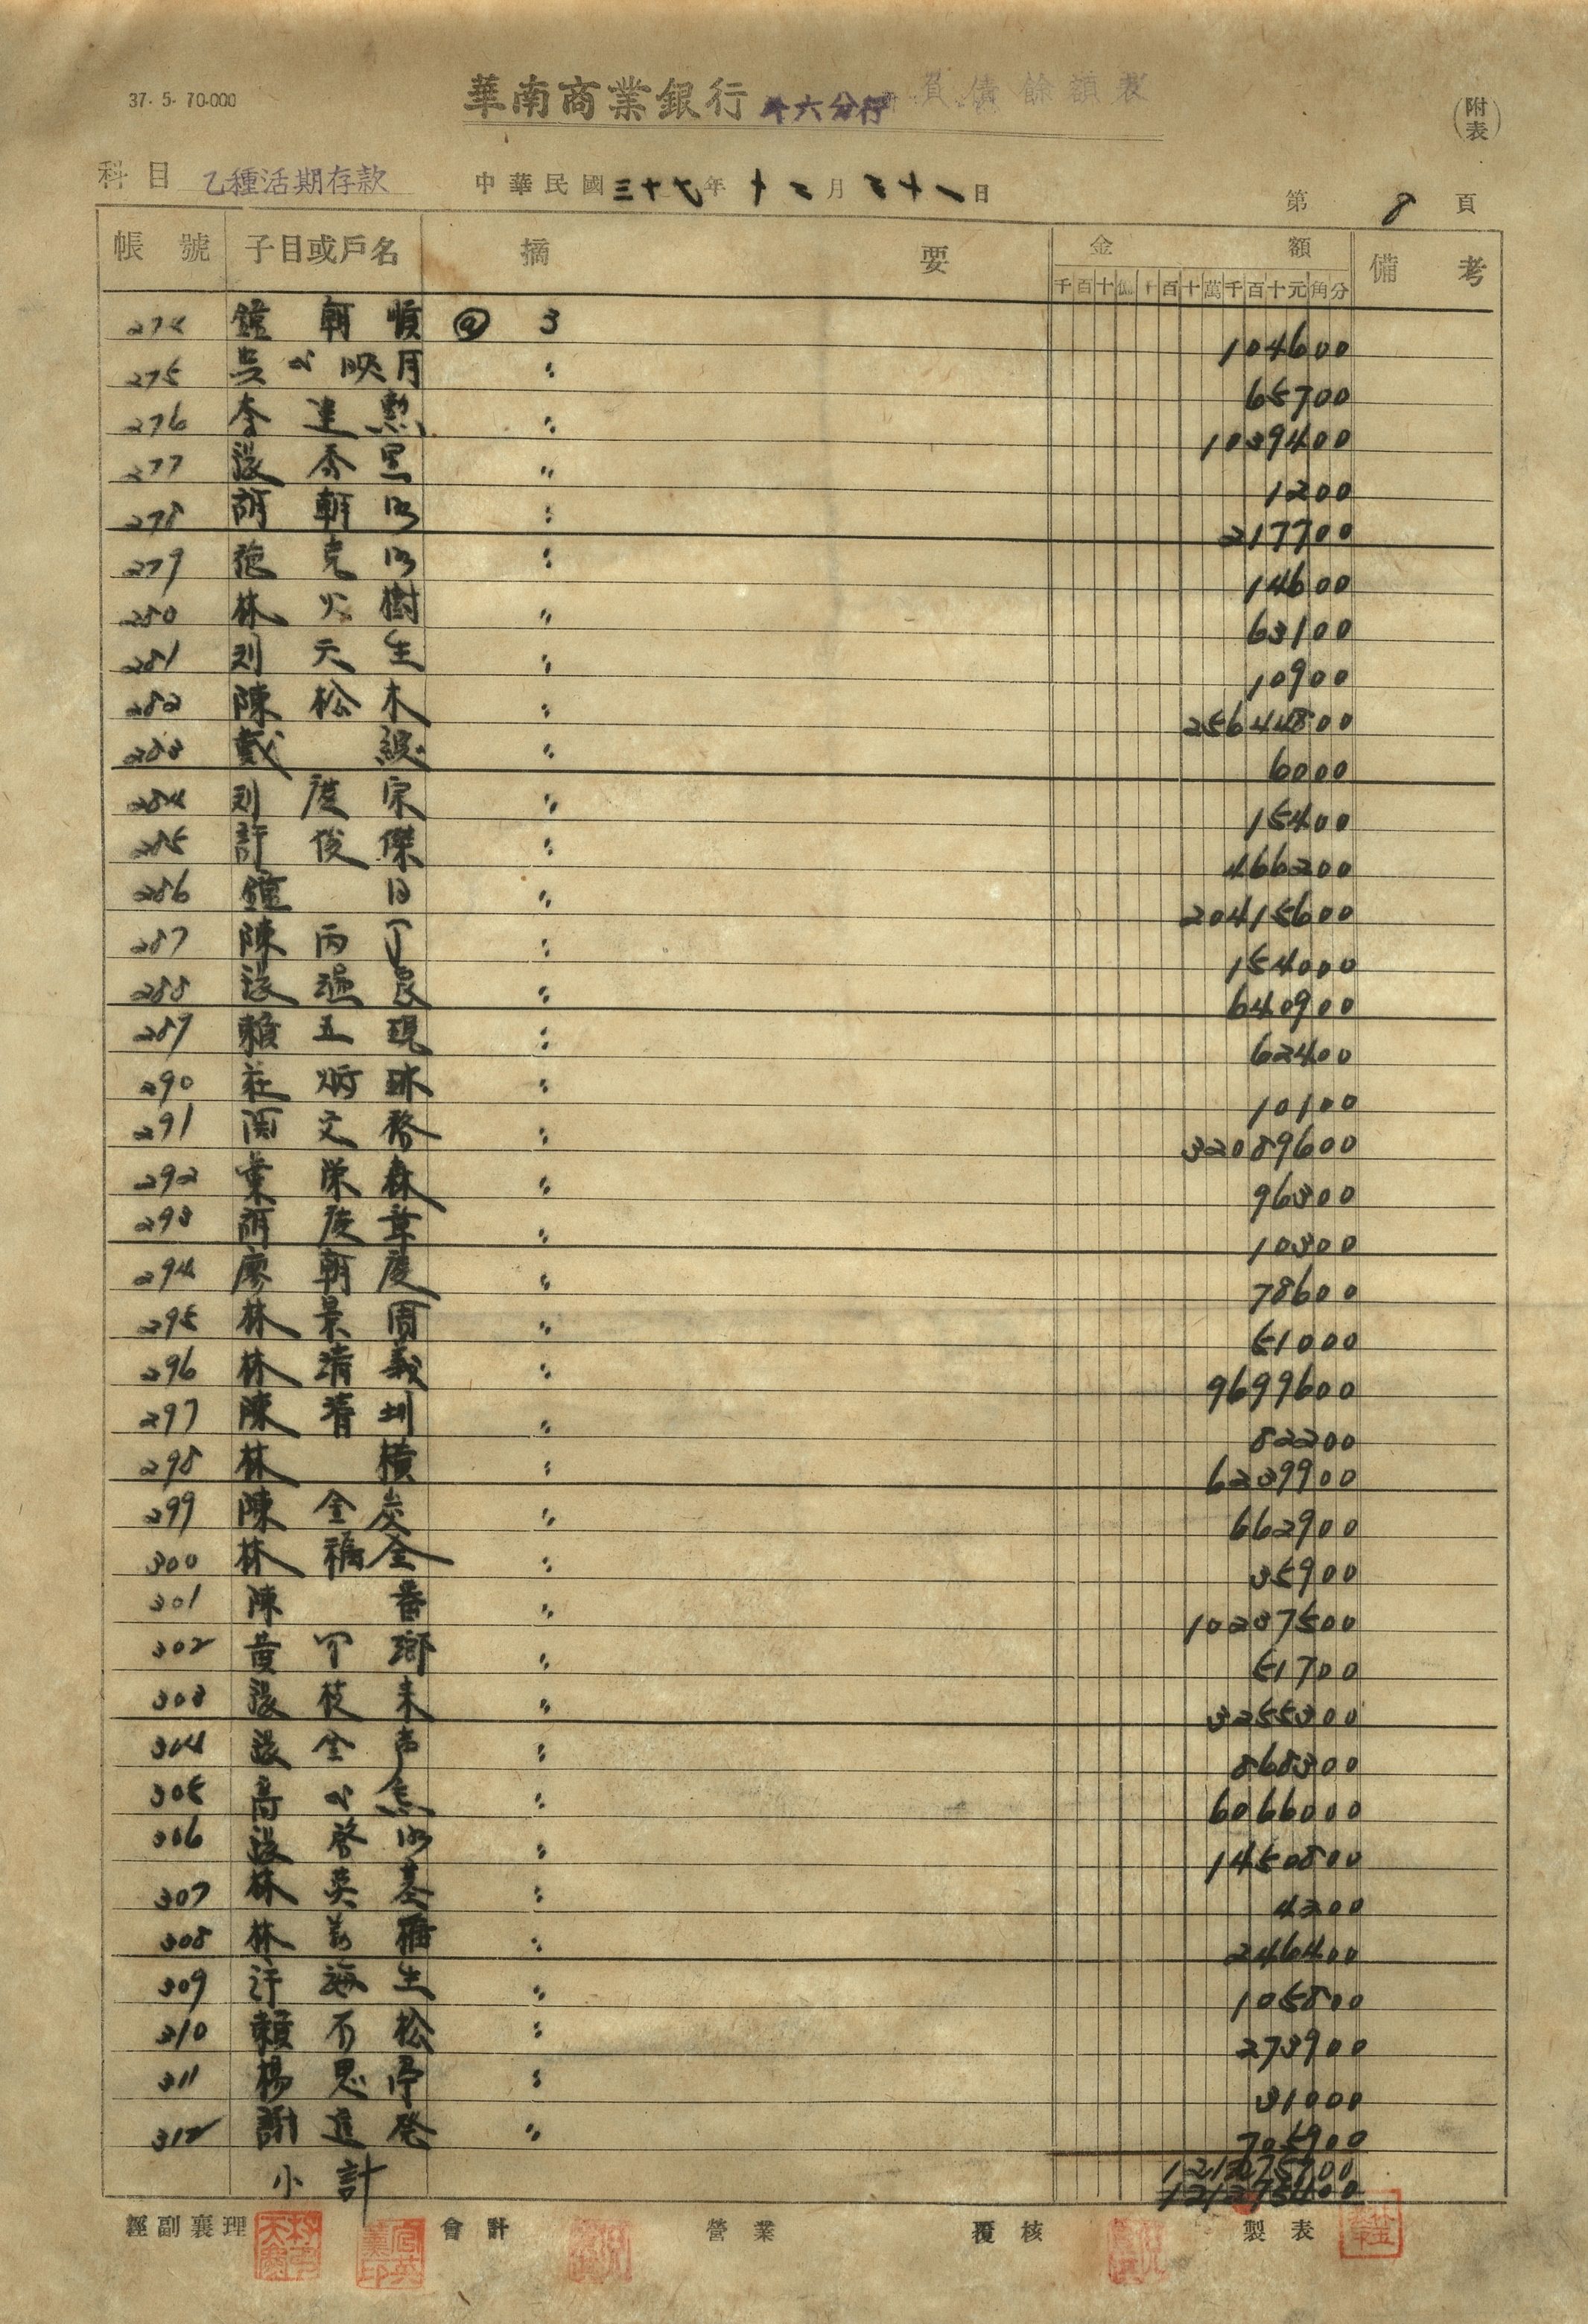 37.5.70.000
華南商業銀行 斗六分行 負債餘額表
(附表)
科目 乙種活期存款 中華民國三十七年十二月三十一日 第8頁
帳號 子目或戶名 摘要 金額 備考
千百十億千百十萬千百十元角分
274 鐘朝順 @3 104600
275 吳 映月 〃 65700
276 李連勲 〃 1039400
277 張 〃 1200
278 胡朝明 〃 217700
279 施克明 〃 14600
280 林火樹 〃 63100
281 刘天生 〃 10900
282 陳松木 〃 25644800
283 戴 〃 6000
284 刘慶宗 〃 15400
285 許俊傑 〃 466200
286 鐘日 〃 20415600
287 陳丙丁 〃 154000
288 張 良 〃 640900
289 賴五現 〃 62400
290 莊炳琳 〃 10100
291 文 〃 32089600
292 葉栄森 〃 96300
293 胡慶章 〃 10300
294 廖朝慶 〃 78600
295 林景 〃 51000
296 林清義 〃 9699600
297 陳清圳 〃 82200
298 林橫 〃 6239900
299 陳金炭 〃 662900
300 林福全 〃 35900
301 陳番 〃 10237500
302 黄 瑯 〃 51700
303 張枝来 〃 3255300
304 張金声 〃 868300
305 高 〃 6066000
306 張啓明 〃 1450800
307 林英基 〃 4200
308 林 〃 246400
309 汪海生 〃 105800
310 賴 松 〃 273900
311 楊思 〃 31000
312 謝進発 〃 705900
小計 121295400
經副襄理 會計 營業 覆核 製表